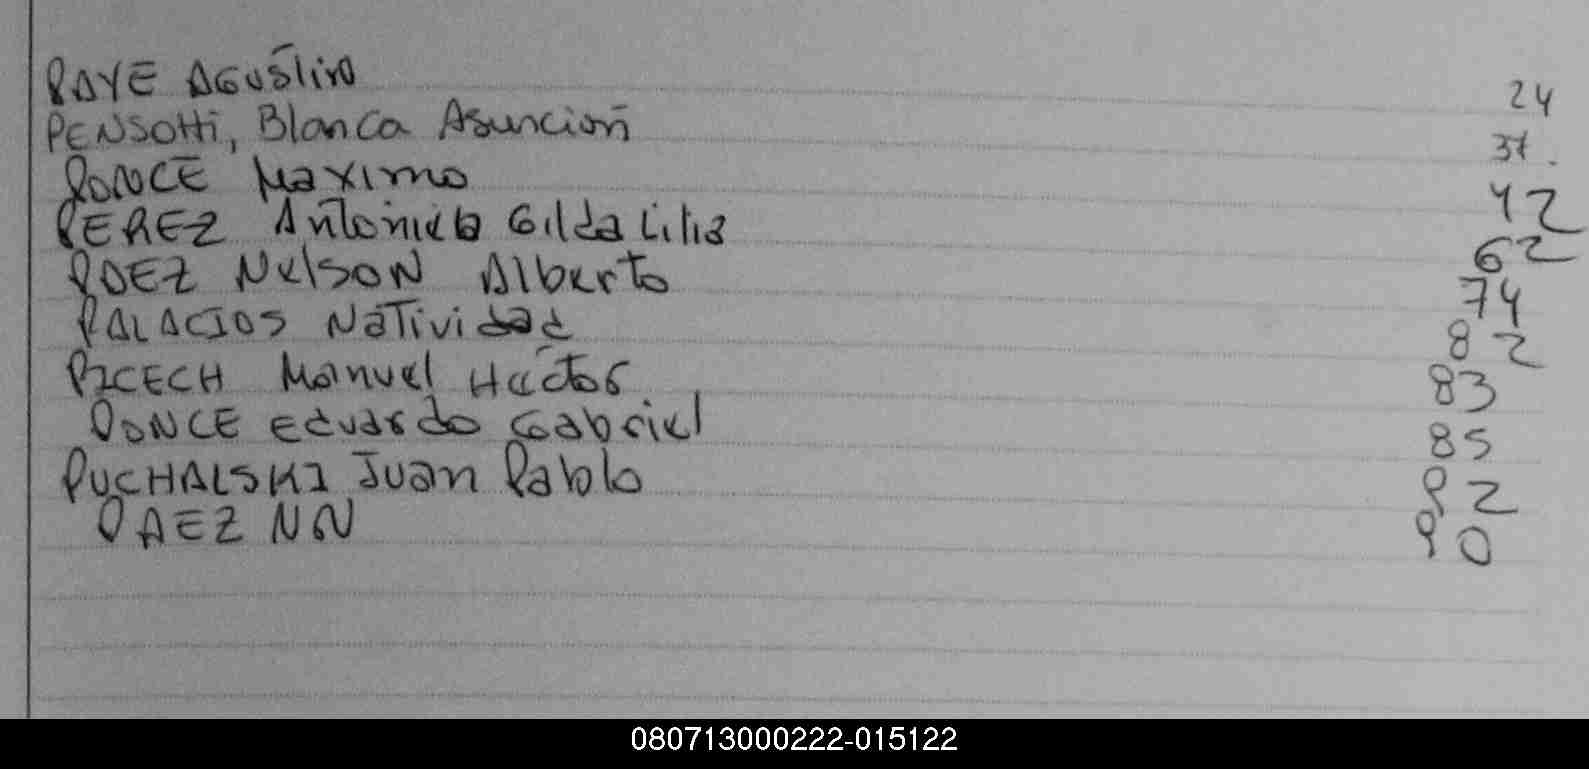 PAYE AGUSTIN 24
PENSOTTI, Blanca Asuncion 37.
PONCE Maximo 42
PEREZ Antonieta Gilda Lilia 62
PAEZ Nelson Alberto 74
PALACIOS Natividad 82
PICECH Manuel Hector 83
PONCE Eduardo Gabriel 85
PUCHALSKI Juan Pablo 92
PAEZ NN 90
080713000222-015122